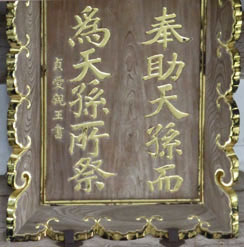 奉助天孫而
為天孫所祭
貞愛親王書